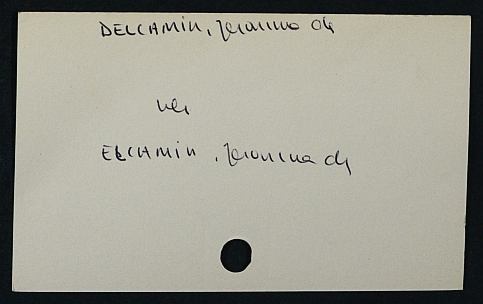 DELCAMIN, Jeronimo de
ver
ELCAMIN, Jeronimo de